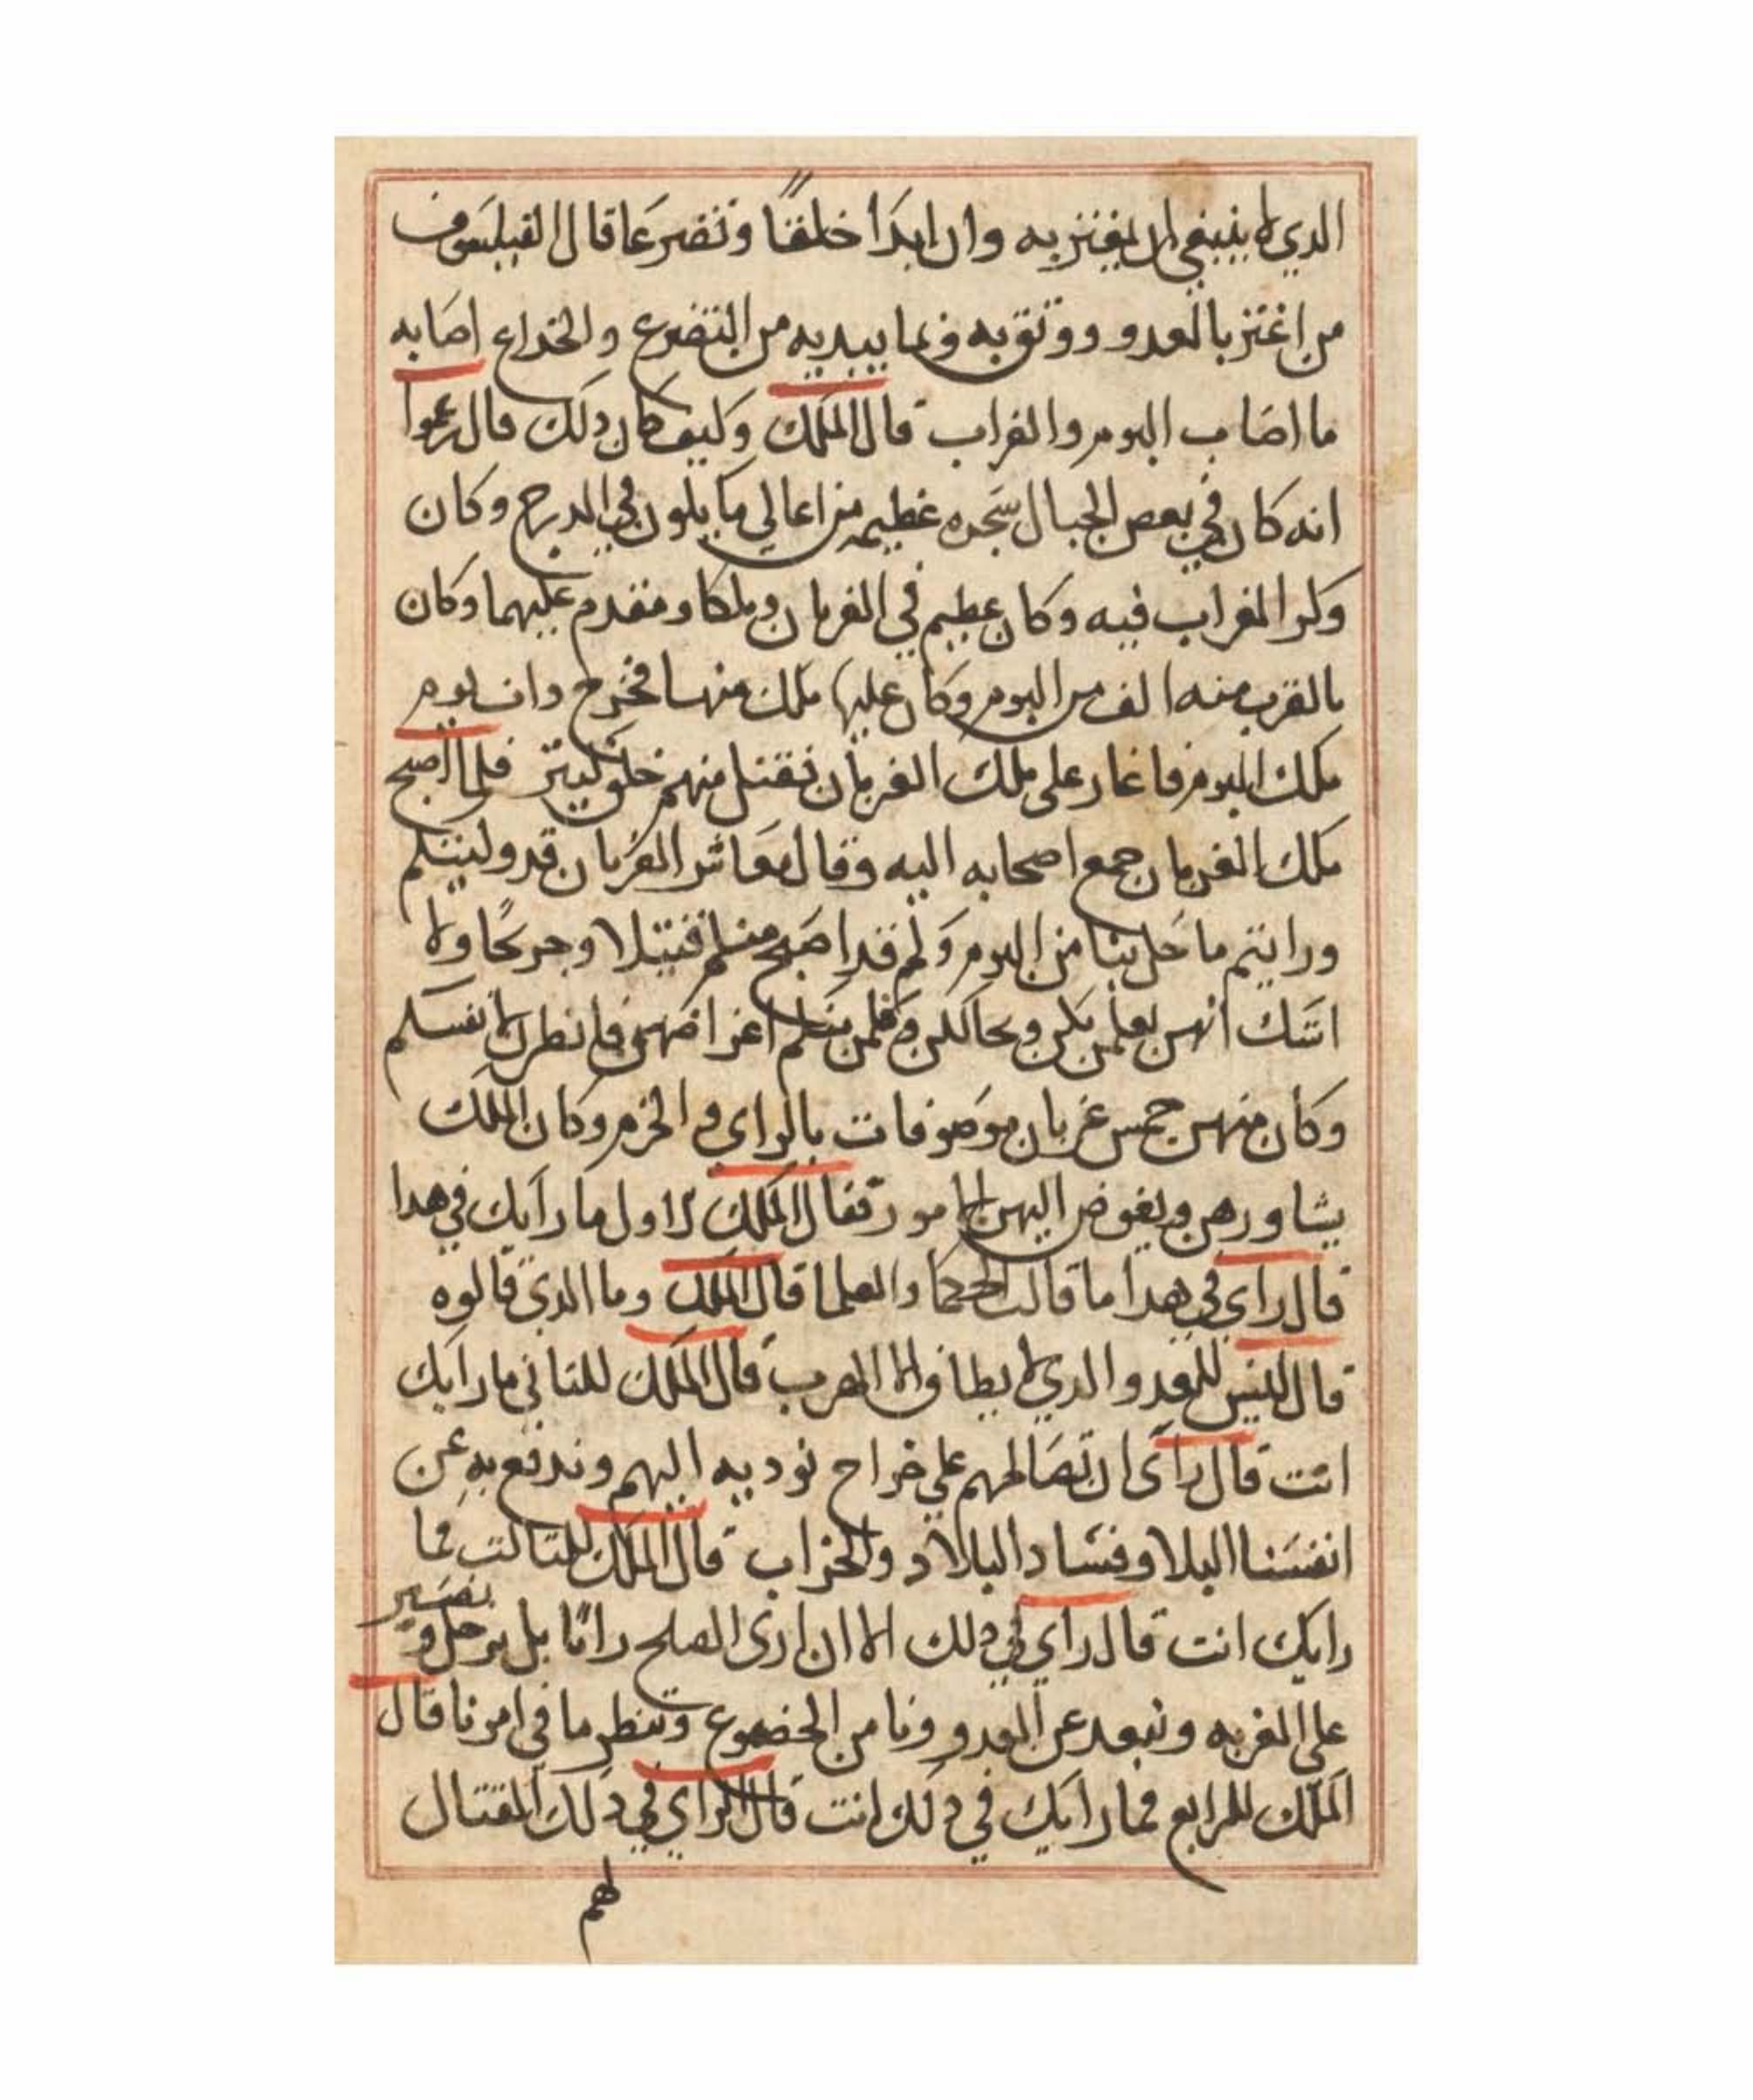 الدي لا ينبغي ان يغتر به وان ابدا خلقًا وتضرعا قال الفيلسوف
من اغتر بالعدو ووتق به فيما يبديه من التضرع والخداع اصابه
ما اصاب البوم والغراب قال الملك وكيف كان دلك قال زعموا
انه كان في بعض الجبال شجره عظيمه من اعالي ما يكون في الدرج وكان
وكر الغراب فيه وكان عظيم في الغربان وملكا ومقدم عليهما وكان
بالقرب منه الف من البوم وكان عليها ملك منها فخرج دات يوم
ملك البوم فاغار على ملك الغربان فقتل منهم خلق كتير فلما اصبح
ملك الغربان جمع اصحابه اليه وقال معاشر الغربان قد
ورايتم ما حل بنا من البوم وكم قد اصبح منكم قتيلا وجريحا ولا
اشك انهن اغراضهن فانظر لانفسكم
وكان منهن خمس غربان موصوفات بالراي والحزم وكان الملك
يشاورهن ويفوض اليهن الامور فقال الملك لاول ما رايك في هدا
قال راي في هدا ما قالت الحكما والعلما قال الملك وما الدي قالوه
قال ليس للعدو الدي لا يطاق الا الهرب قال الملك للتاني ما رايك
انت قال راى ان تصالحهم على خراج نوديه اليهم وندفع به عن
انفسنا البلا وفساد البلاد والخراب قال الملك للتالت فما
رايك انت قال راي في دلك الا ان ارى الصلح رائا بل نرحل ونصبر
على الغربه ونبعد عن العدو ونامن الخضوع وننظر ما في امرنا قال
الملك للرابع فما رايك في دلك انت قال الراي في دلك القتال
لهم